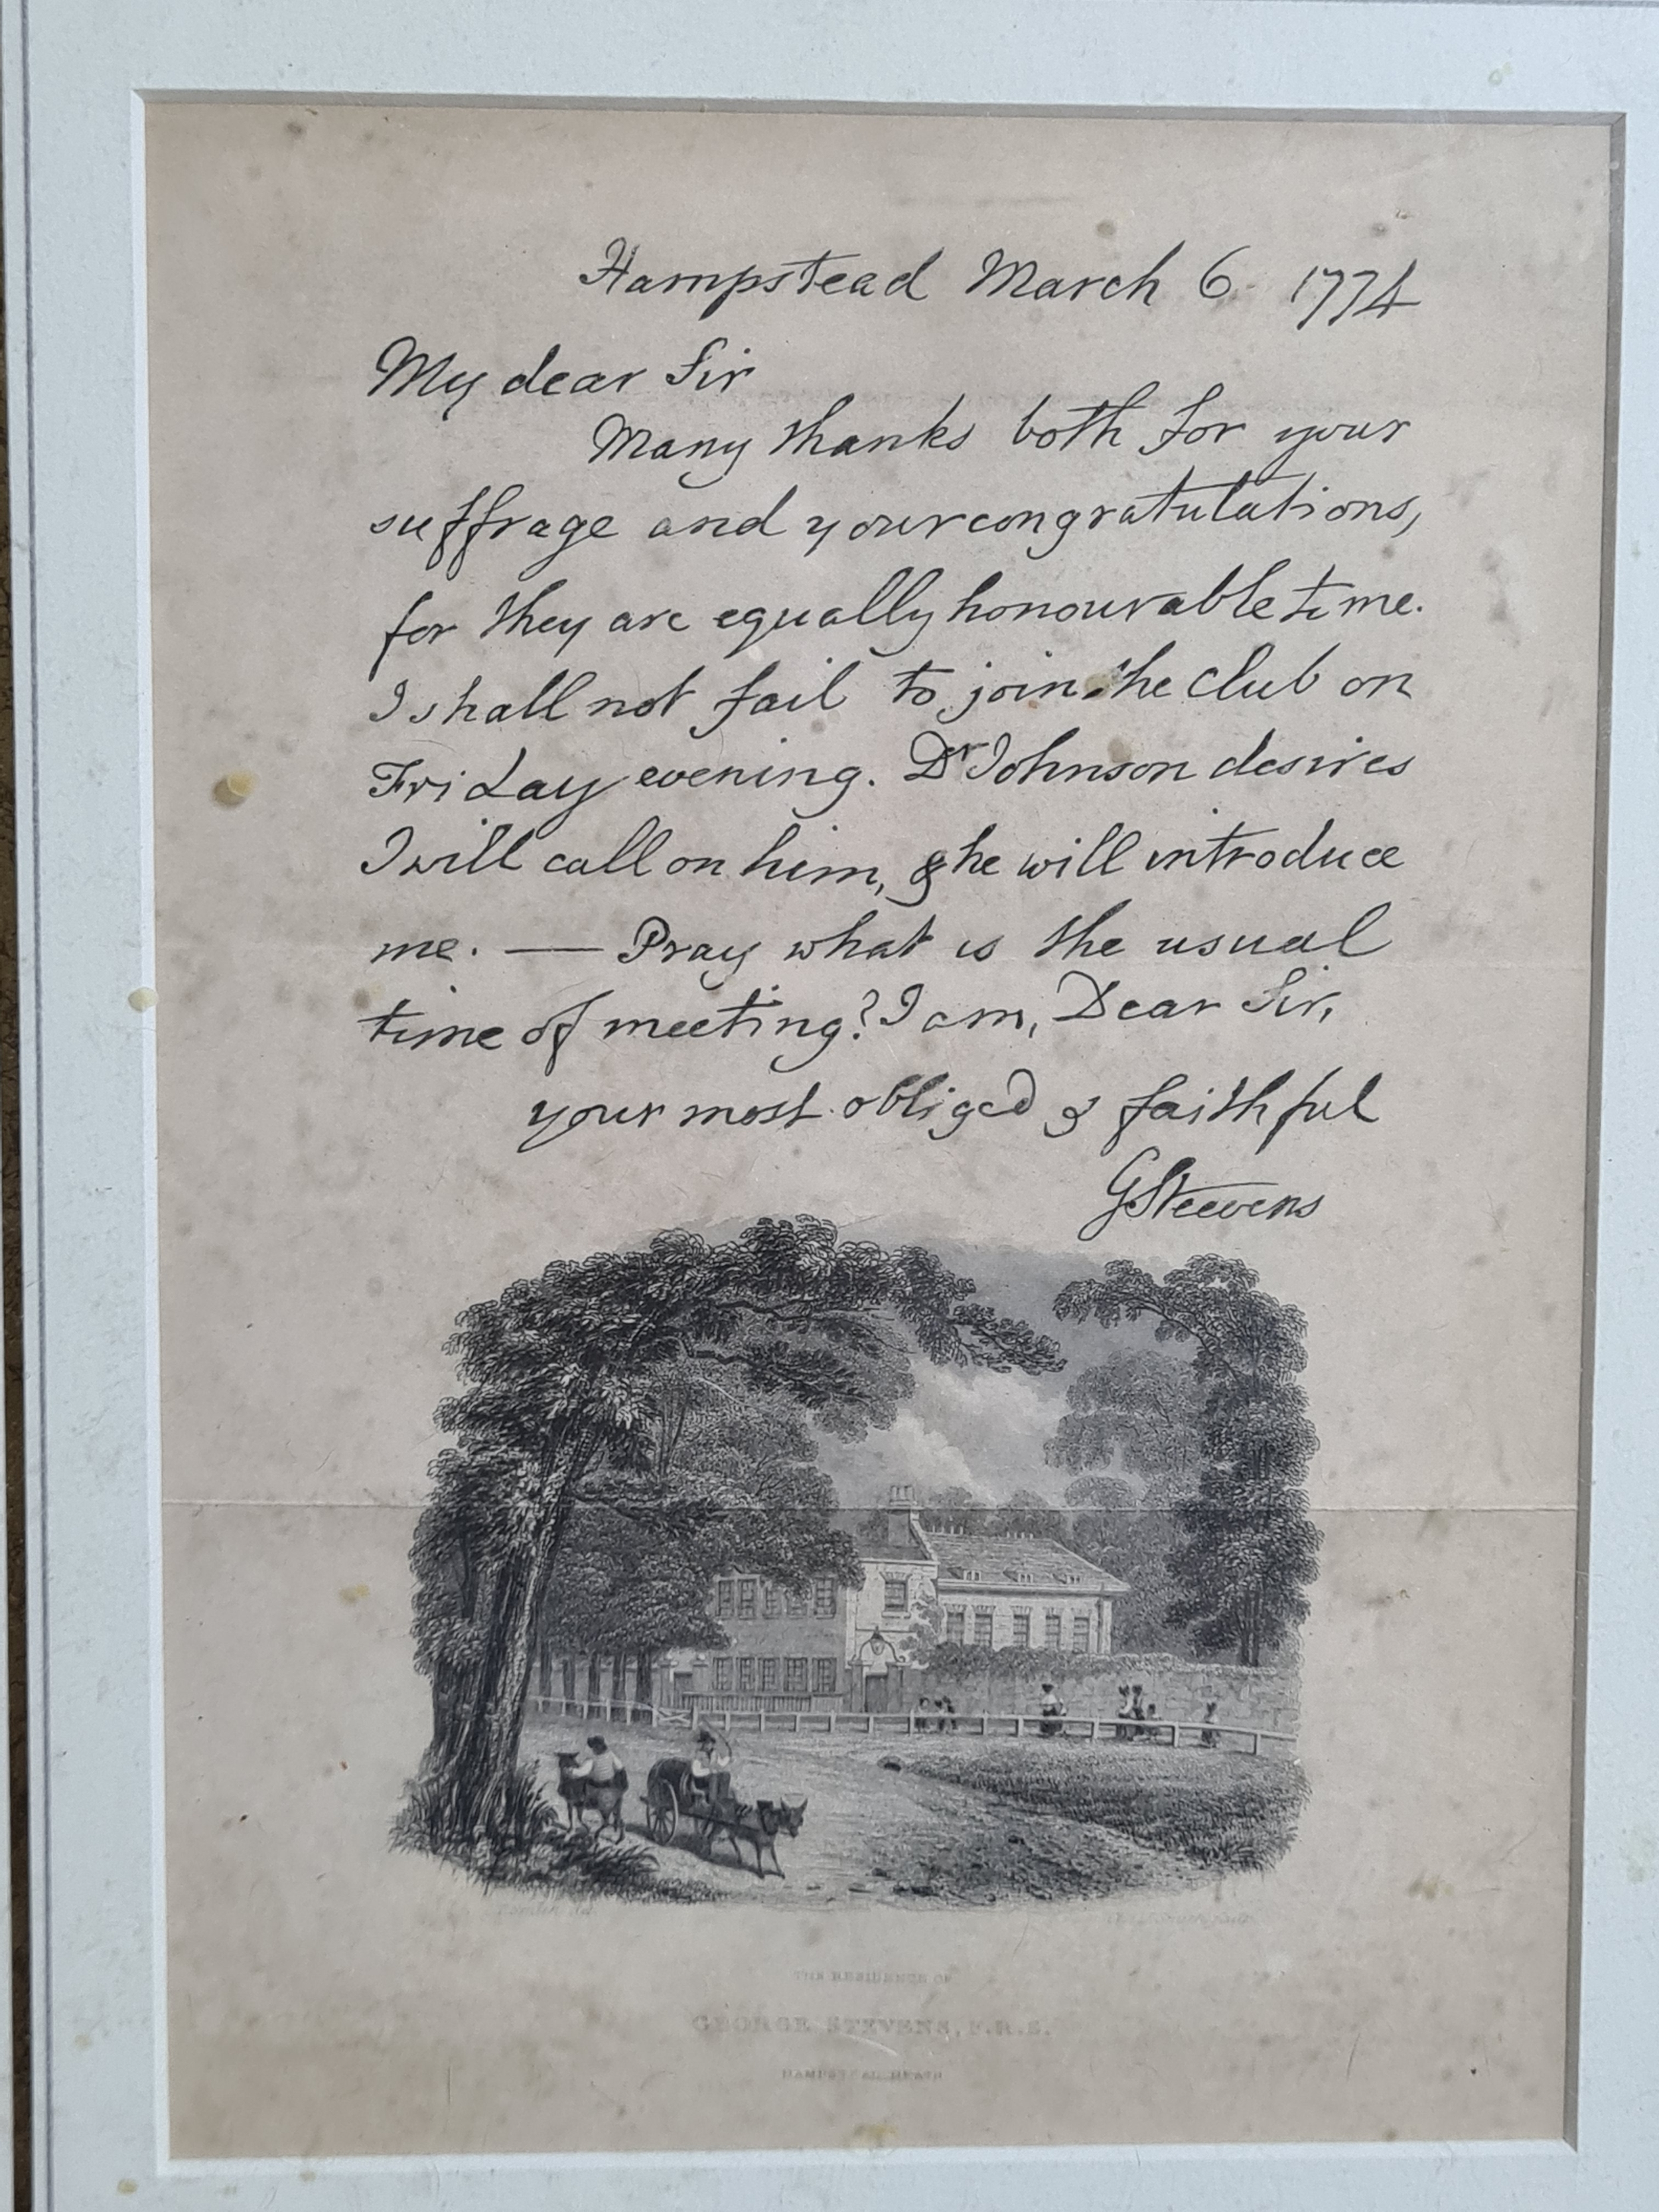 Hampstead March 6 1774
My dear Sir
Many thanks both for your
suffrage and your congratulations,
for they are equally honourable to me.
I shall not fail to join the Club on
Friday evening. Dr Johnson desires
I will call on him, & he will introduce
me. — Pray what is the usual
time of meeting? I am, Dear Sir,
your most obliged & faithful
GSteevens
THE RESIDENCE OF
GEORGE STEVENS, F.R.S.
HAMPSTEAD HEATH